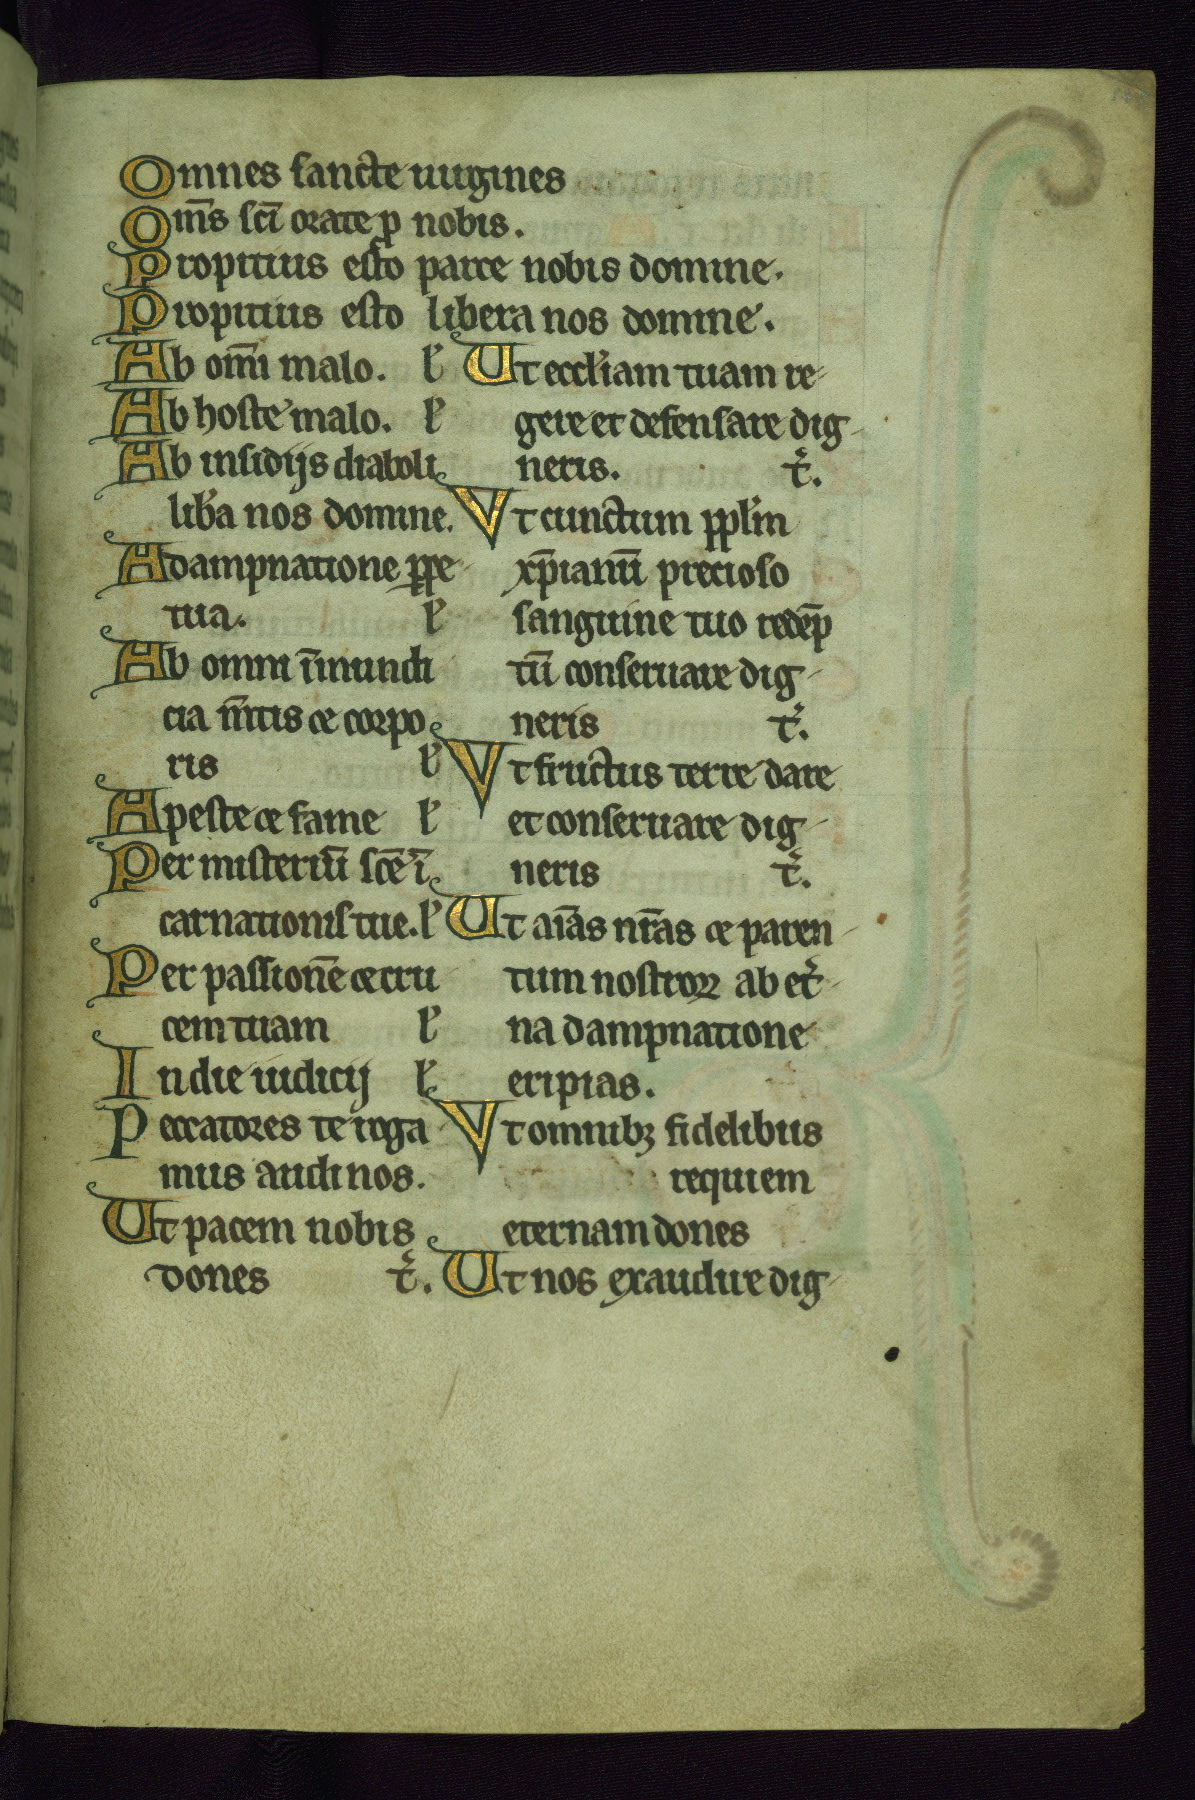 Omnes sancte uirgines
Om̅s sc̅i orate p nobis.
Propitius esto parce nobis domine.
Propitius esto libera nos domine.
Ab om̅i malo. l'
Ab hoste malo. l'
Ab insidijs diaboli
lib'a nos domine.
A dampnatione ppe
tua. l'
Ab omni i̅mundi
cia m̅tis et corpo
ris l'
A peste et fame l'
Per misteriu̅ sc̅e i̅
carnationis tue. l'
Per passione̅ et cru
cem tuam l'
In die iudicij l'
Peccatores te roga
mus audi nos.
Ut pacem nobis
dones t'.
Ut eccl'iam tuam re
gere et defensare dig
neris. t'.
Vt cunctum ppl'm
xp̅ianu̅ precioso
sanguine tuo rede̅p
tu̅ conseruare dig
neris t'.
Vt fructus terre dare
et conseruare dig
neris t'.
Ut ai̅as nr̅as et paren
tum nostroꝝ ab et'
na dampnatione
eripias.
Vt omnibꝫ fidelibus
requiem
eternam dones
Ut nos exaudire dig